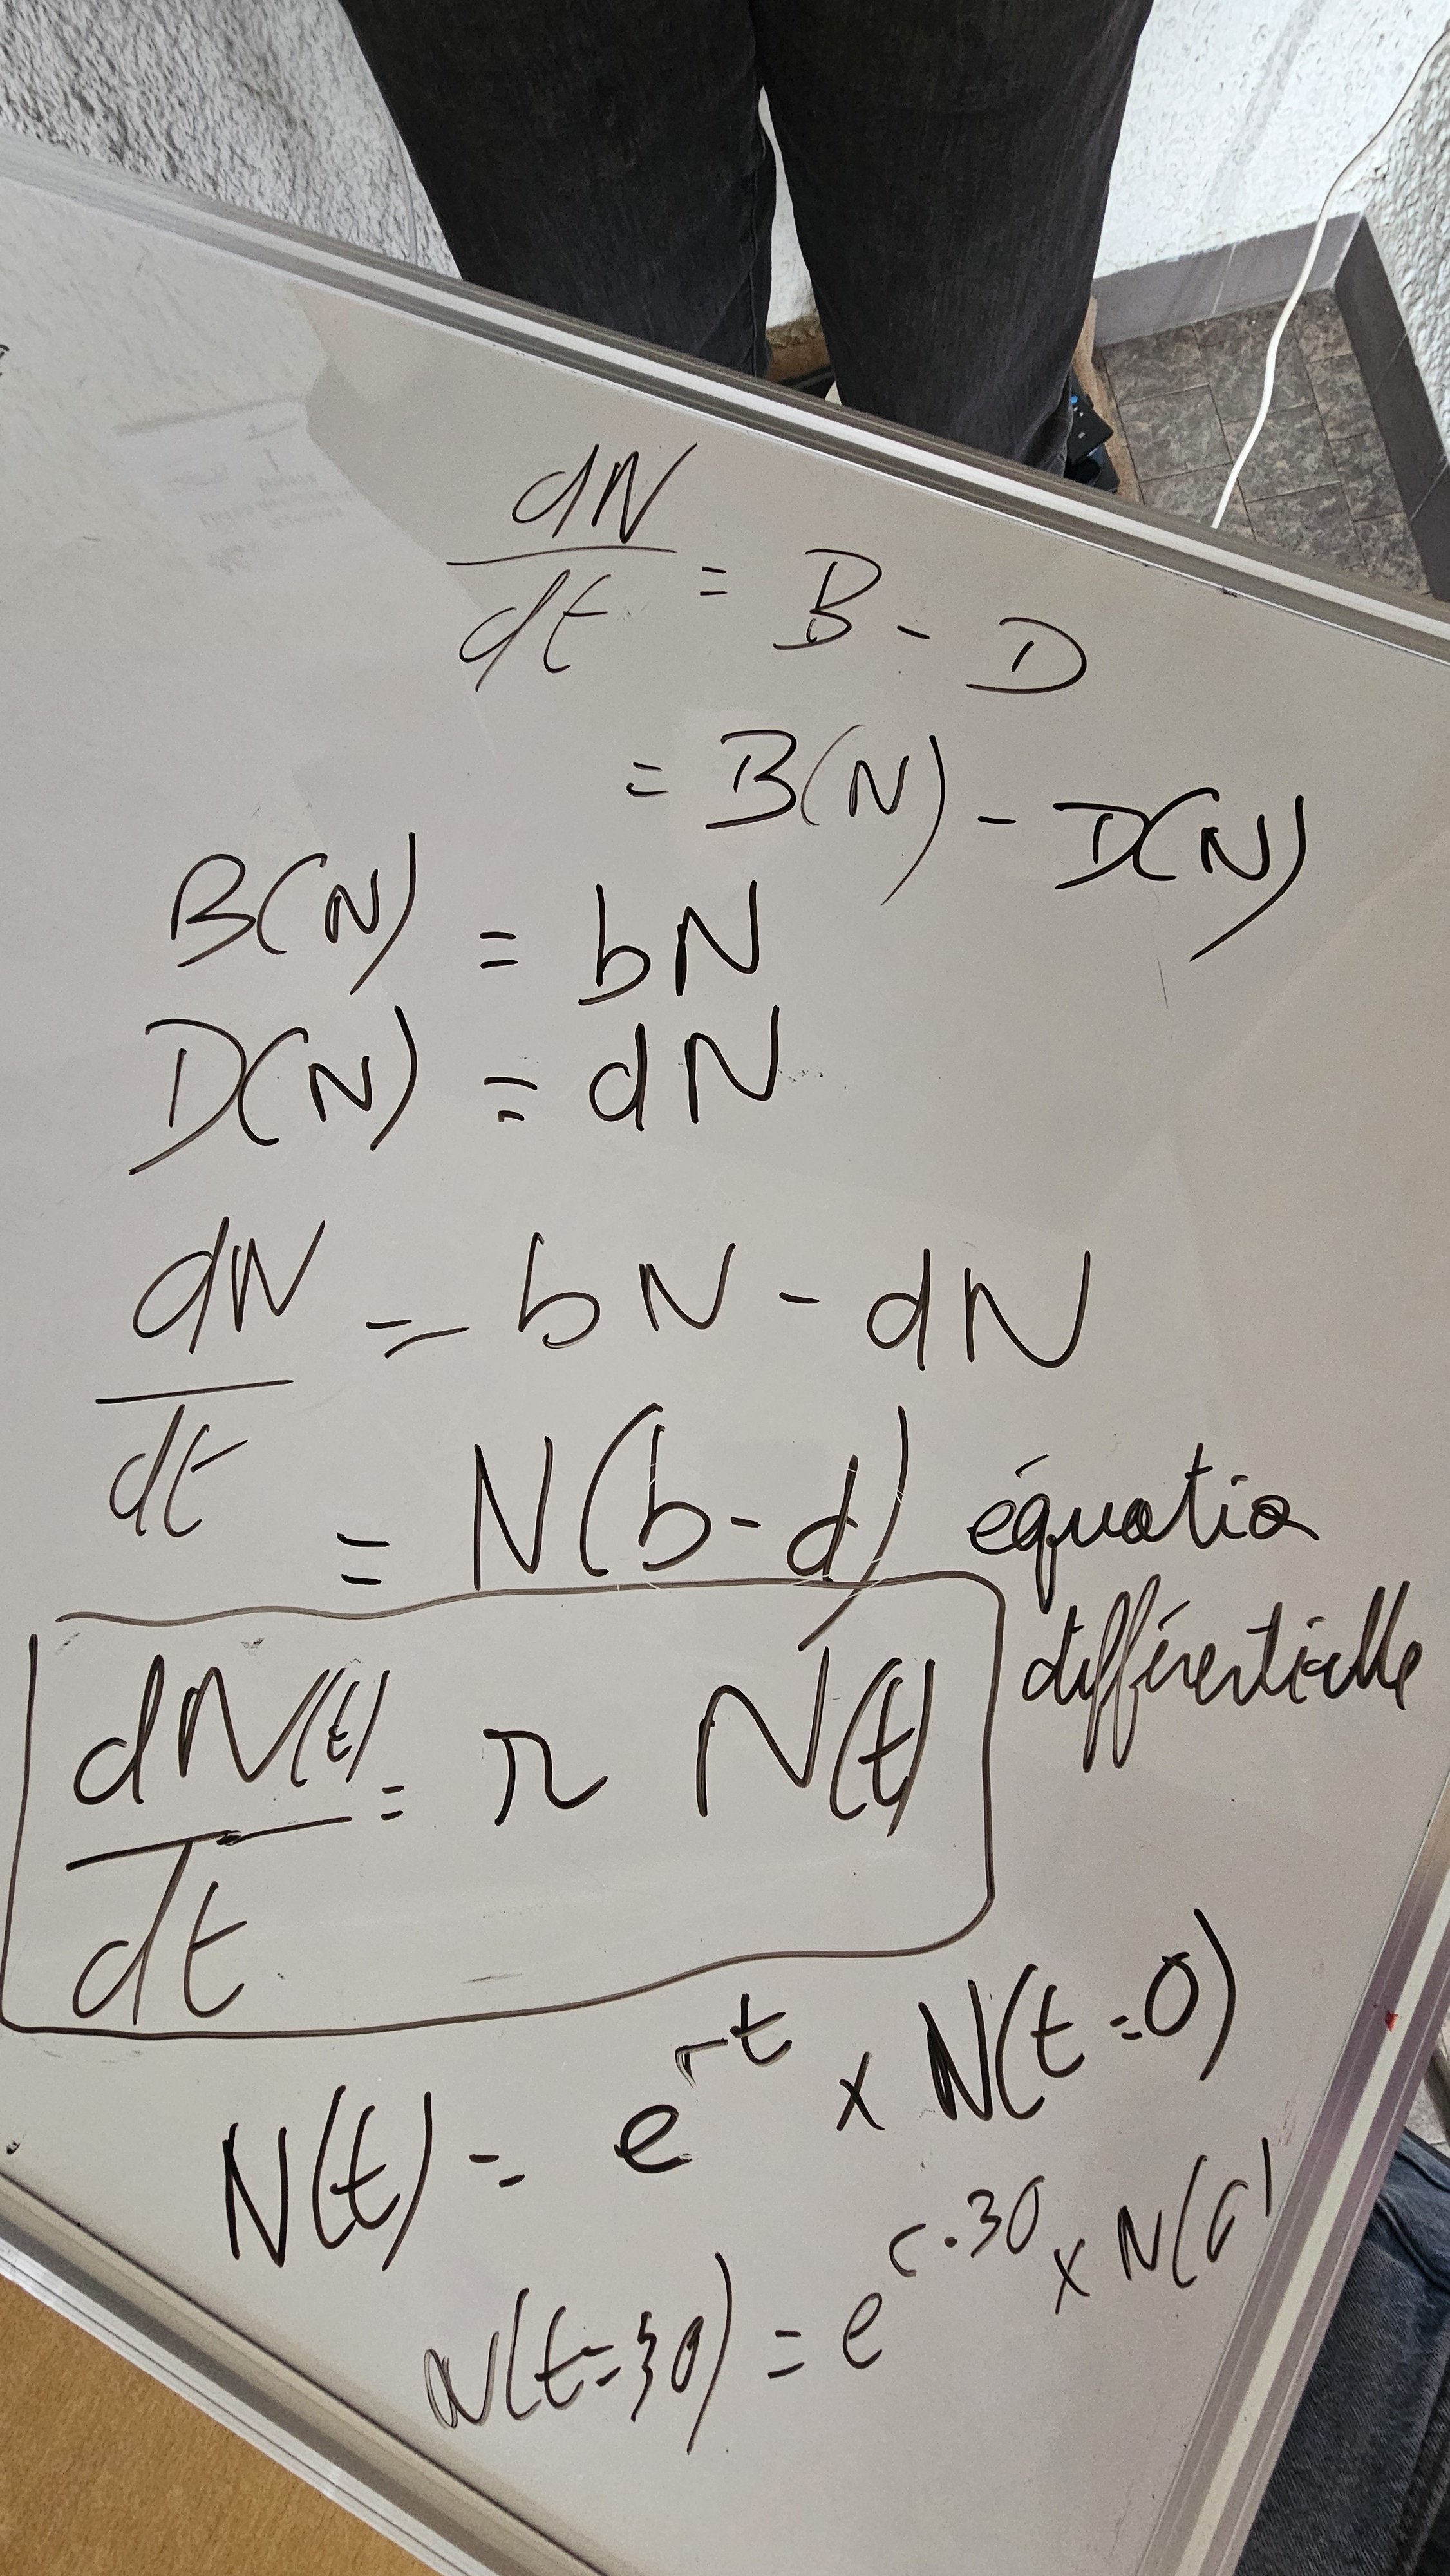 dN/dt = B - D
= B(N) - D(N)
B(N) = bN
D(N) = dN
dN/dt = bN - dN
= N(b-d) équation
différentielle
dN(t)/dt = r N(t)
N(t) = e^rt × N(t=0)
N(t=30) = e^r.30 × N(0)